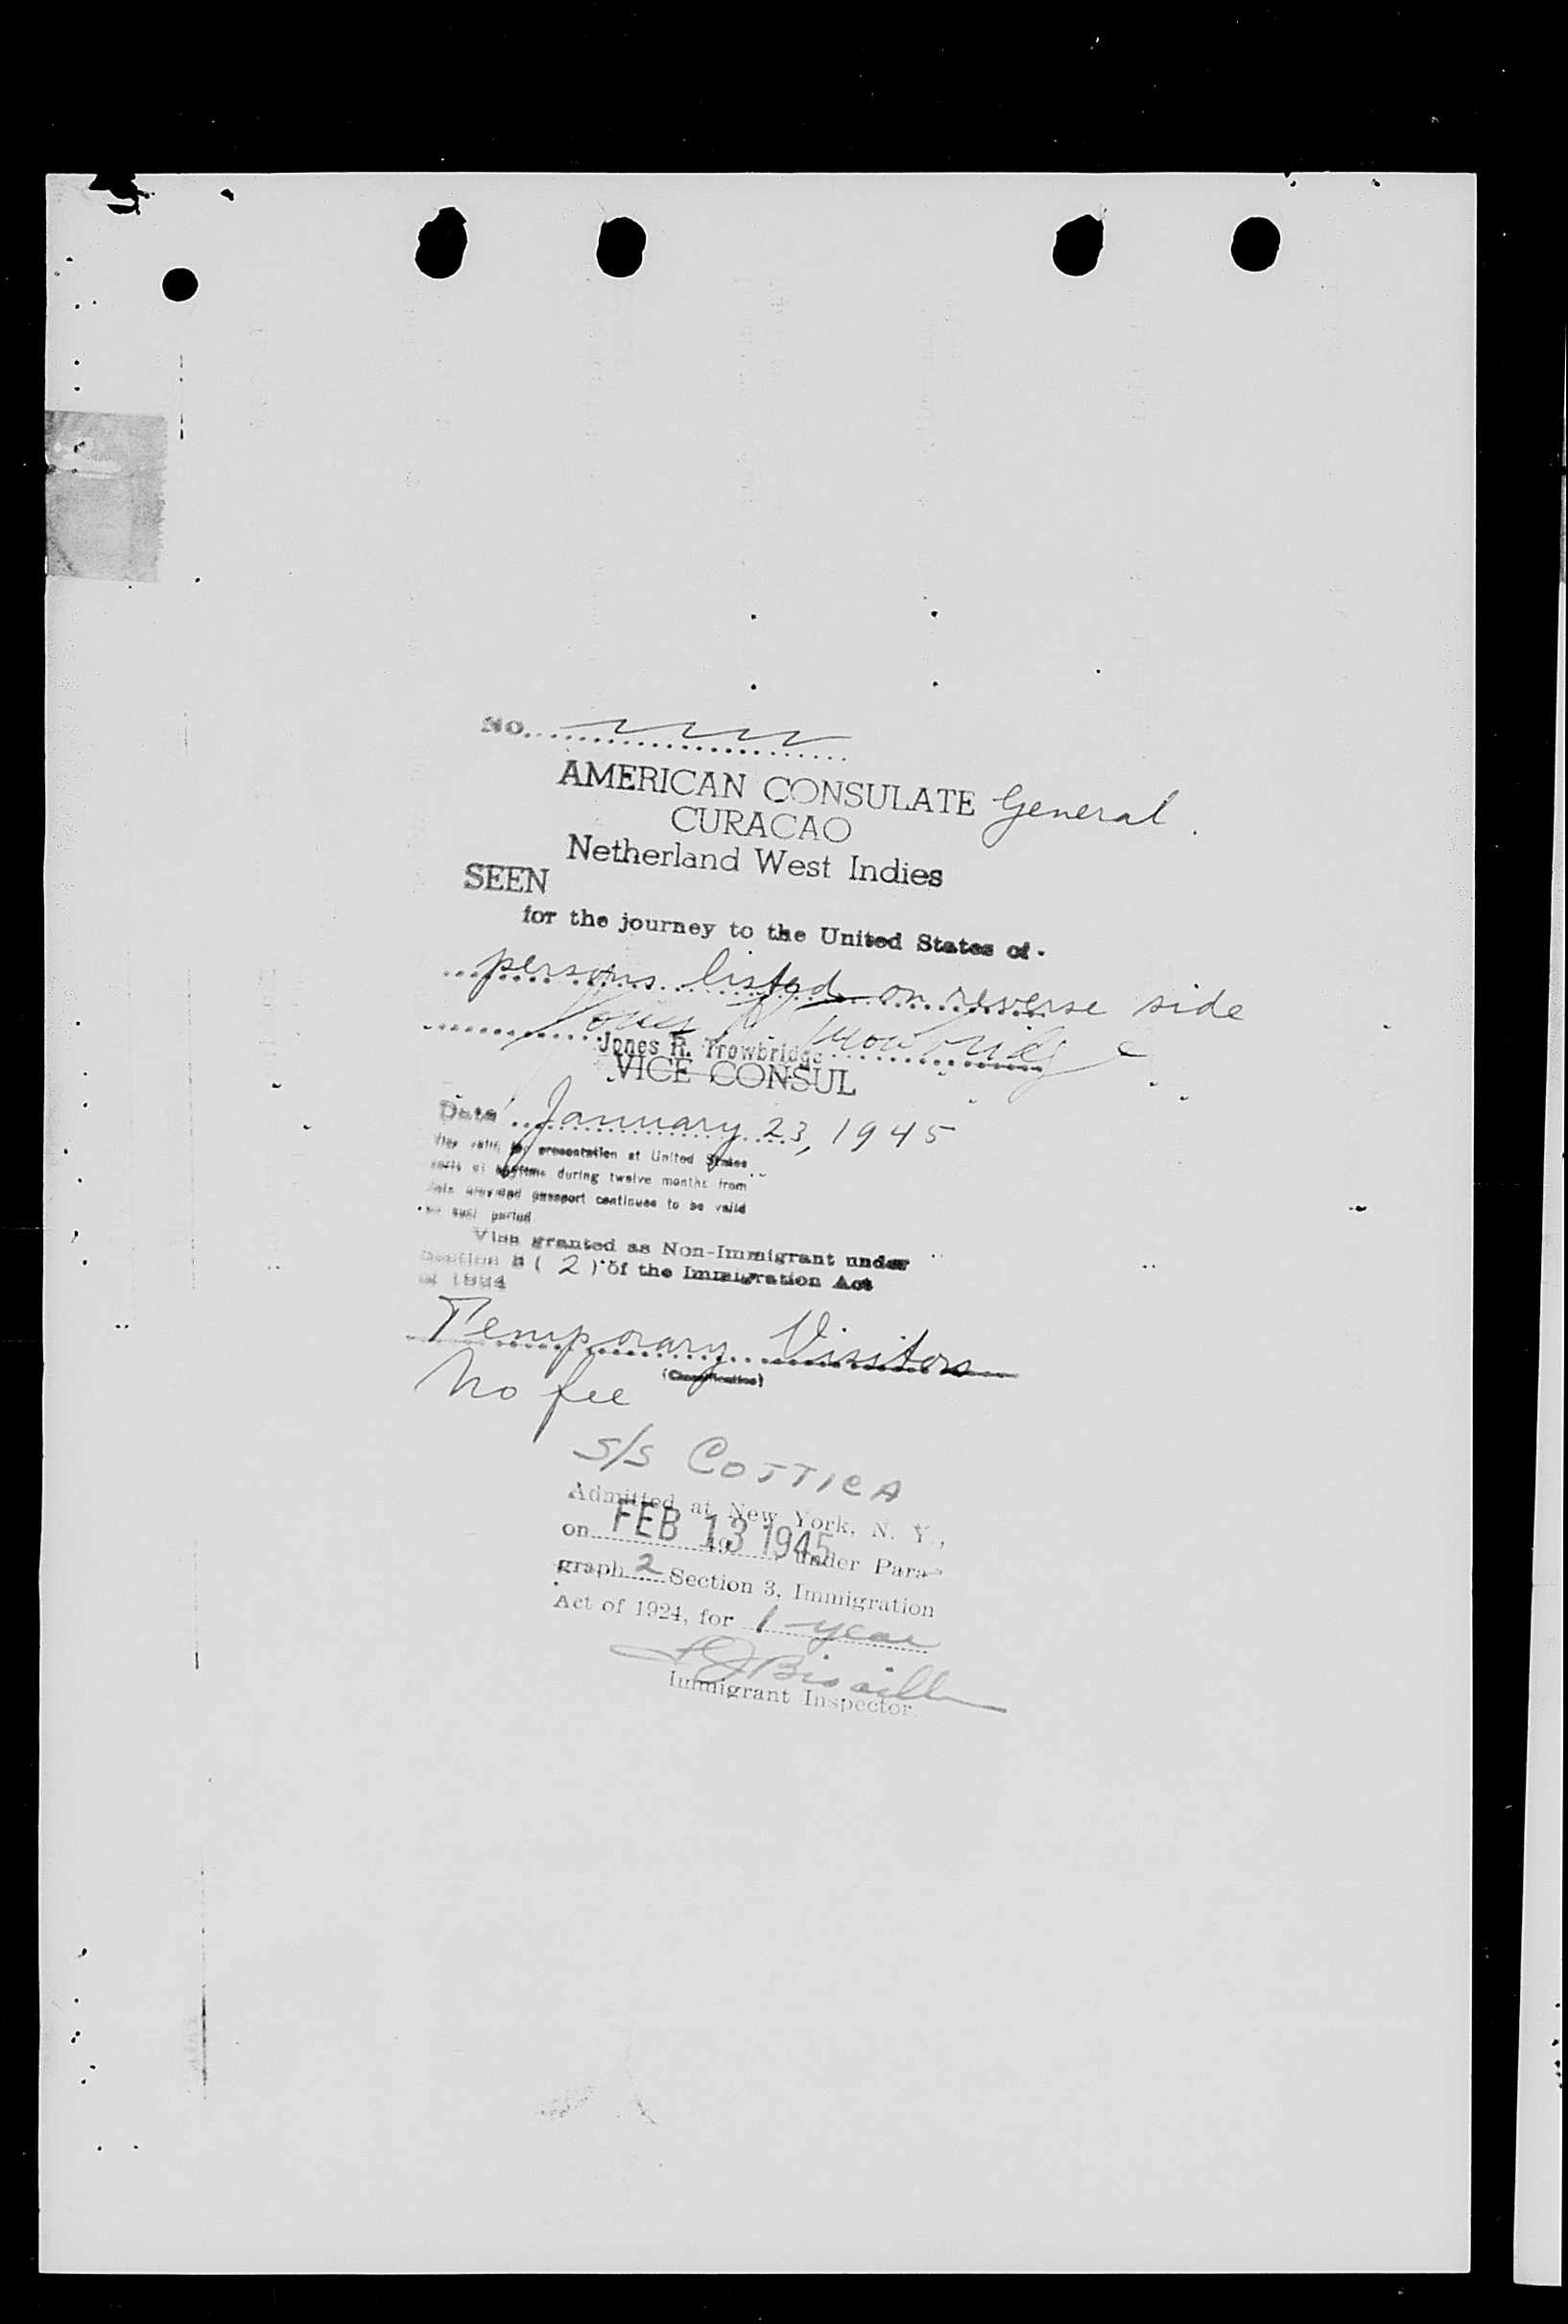 No.
AMERICAN CONSULATE General.
CURACAO
Netherland West Indies
SEEN
for the journey to the United States of
persons listed on reverse side
Jones R. Trowbridge
Jones R. Trowbridge
VICE CONSUL
Date January 23, 1945
presentation at United States
during twelve months from
passport continues to be valid
period
Visa granted as Non-Immigrant under
Section 3 (2) of the Immigration Act
of 1924
Temporary Visitors
(Classification)
No fee
S/S COTTICA
Admitted at New York, N. Y.,
on FEB 13 1945 19 under Para-
graph 2 Section 3, Immigration
Act of 1924, for 1 year
Immigrant Inspector.